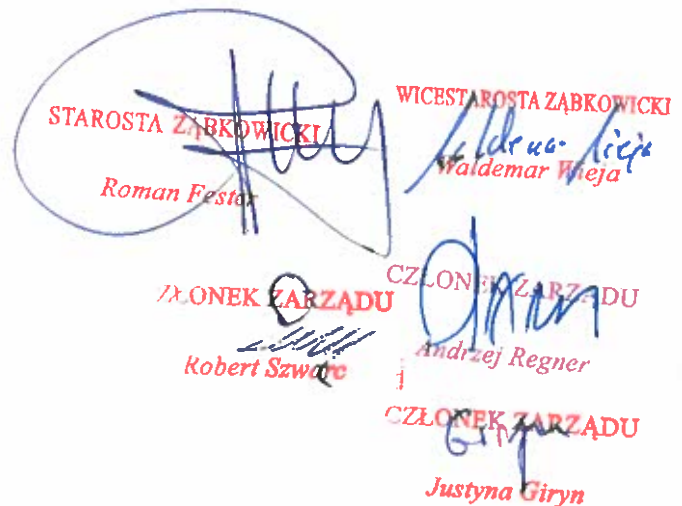 STAROSTA ZĄBKOWICKI
Roman Fester
WICESTAROSTA ZĄBKOWICKI
Waldemar Wieja
CZŁONEK ZARZĄDU
Robert Szwarc
CZŁONEK ZARZĄDU
Andrzej Regner
CZŁONEK ZARZĄDU
Justyna Giryn